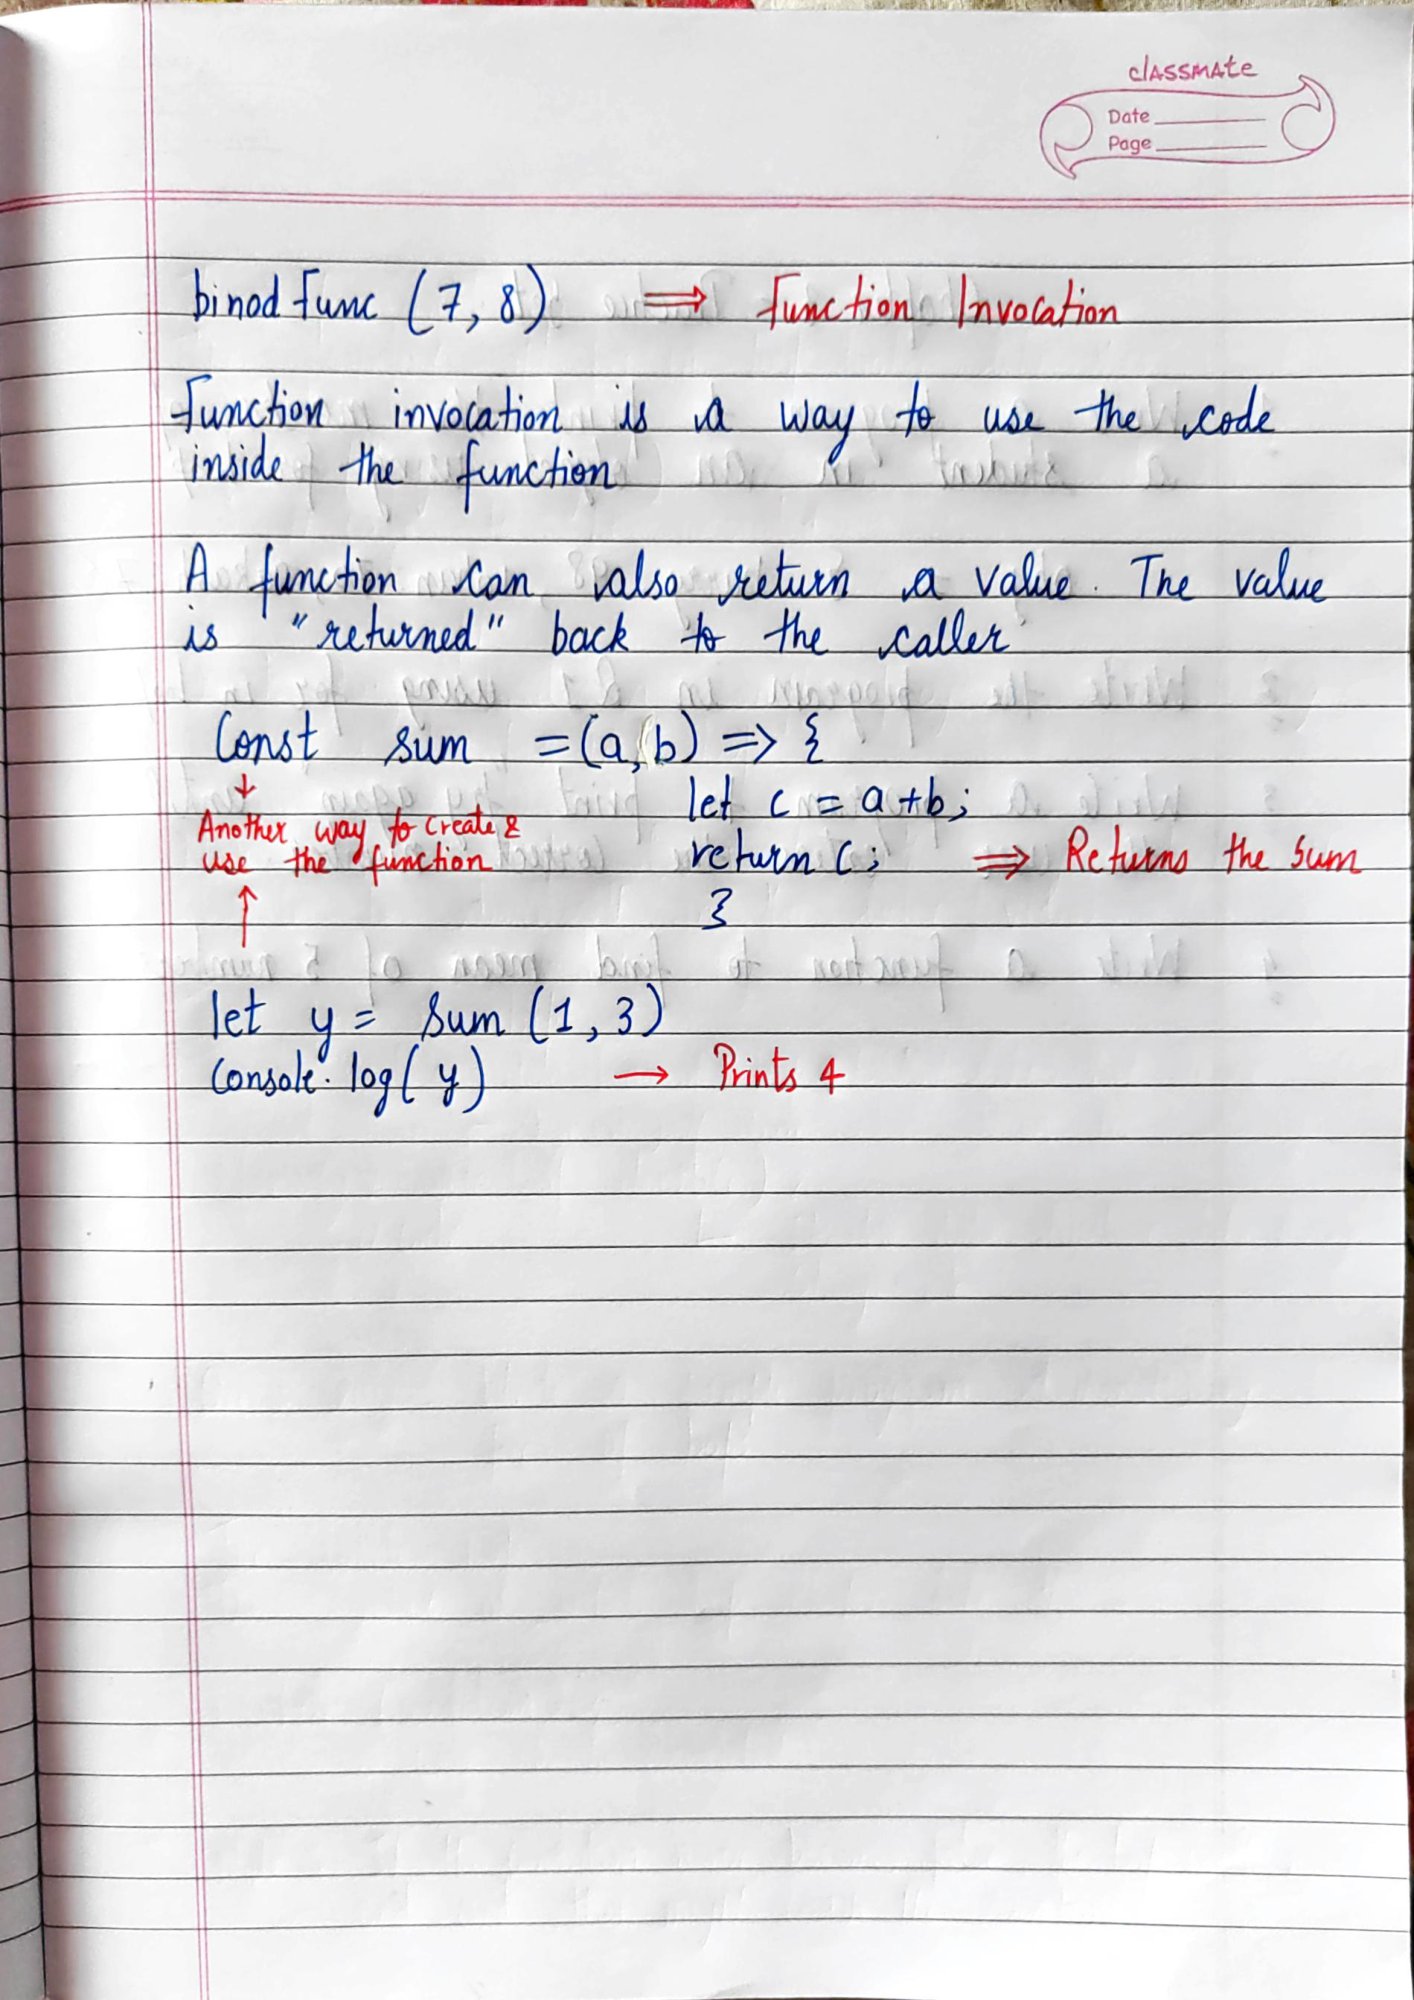 classmate
Date
Page
binod func (7, 8) ⟹ function Invocation
function invocation is a way to use the code
inside the function
A function can also return a value. The value
is "returned" back to the caller
Const sum = (a, b) => {
let c = a + b;
Another way to create &
use the function
return c; ⟹ Returns the sum
}
let y = sum (1, 3)
Console.log( y ) → Prints 4